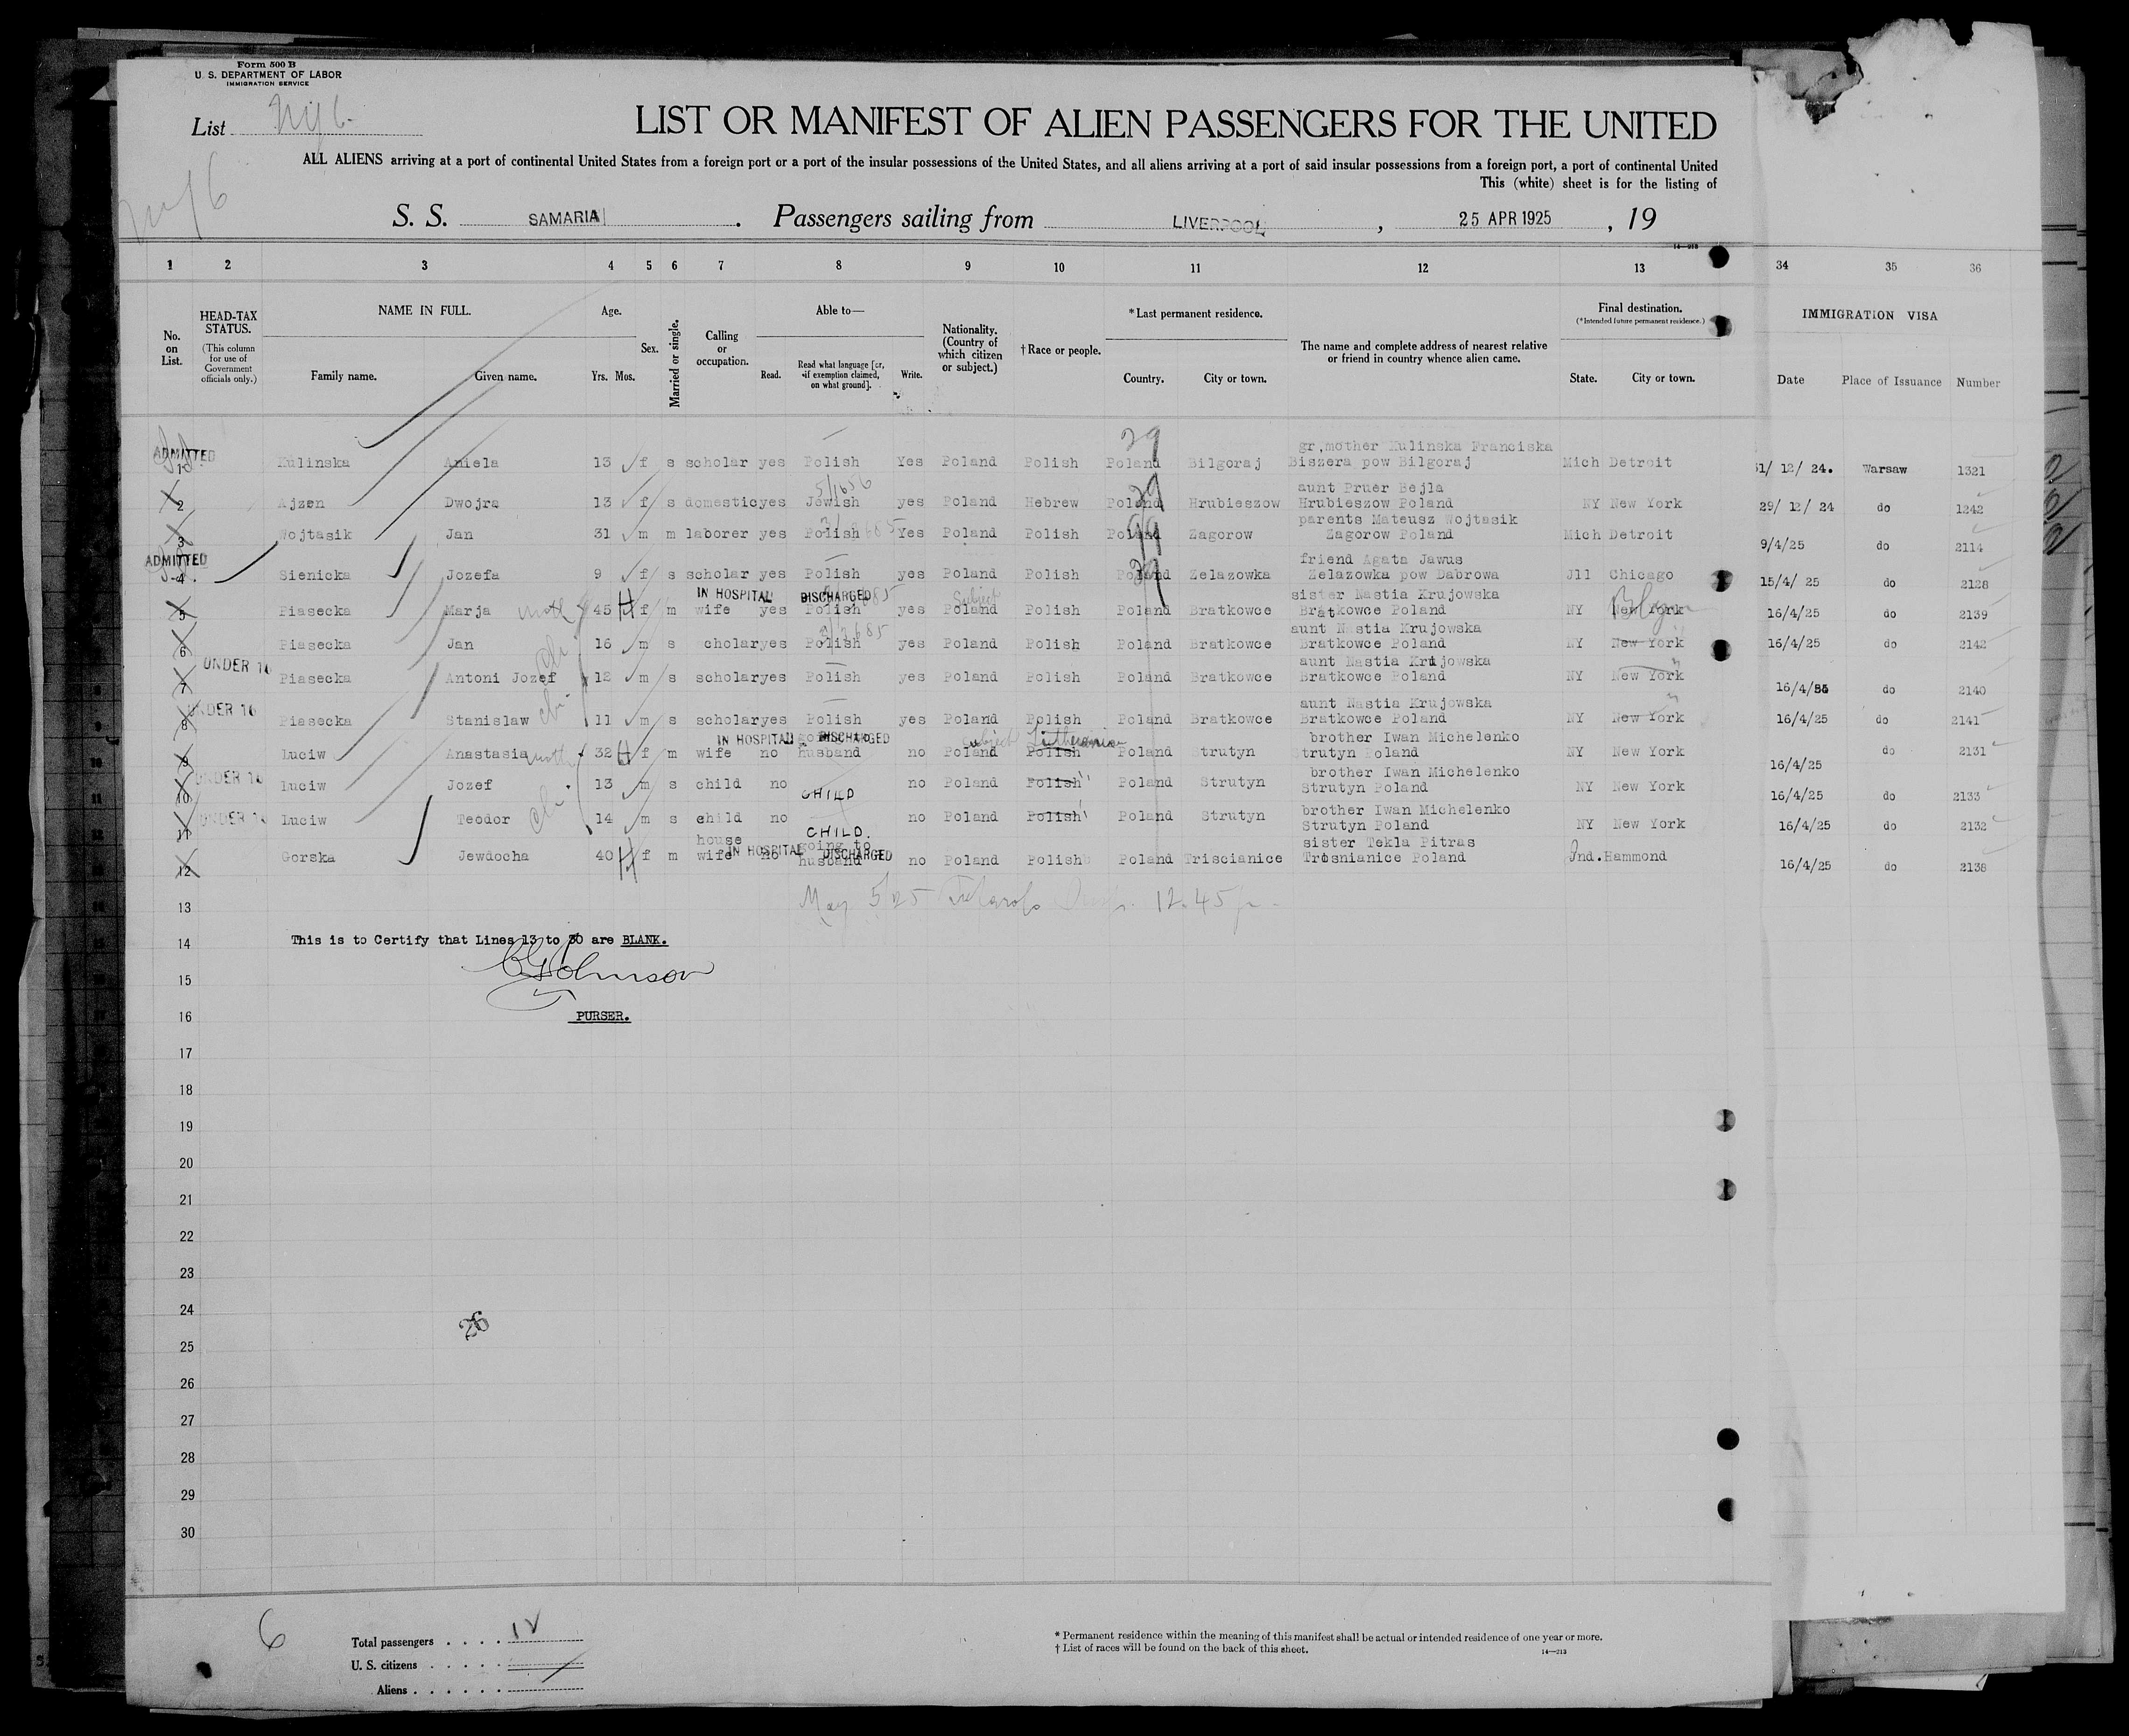 Form 500 B
U. S. DEPARTMENT OF LABOR
IMMIGRATION SERVICE
List
LIST OR MANIFEST OF ALIEN PASSENGERS FOR THE UNITED
ALL ALIENS arriving at a port of continental United States from a foreign port or a port of the insular possessions of the United States, and all aliens arriving at a port of said insular possessions from a foreign port, a port of continental United
This (white) sheet is for the listing of
S. S. SAMARIA . Passengers sailing from LIVERPOOL , 25 APR 1925 , 19
14—213
1 2 3 4 5 6 7 8 9 10 11 12 13 34 35 36
No. on List.
HEAD-TAX STATUS.
(This column for use of Government officials only.)
NAME IN FULL.
Family name. Given name.
Age.
Yrs. Mos.
Sex.
Married or single.
Calling or occupation.
Able to—
Read. Read what language [or, if exemption claimed, on what ground]. Write.
Nationality. (Country of which citizen or subject.)
† Race or people.
*Last permanent residence.
Country. City or town.
The name and complete address of nearest relative or friend in country whence alien came.
Final destination.
(*Intended future permanent residence.)
State. City or town.
IMMIGRATION VISA
Date Place of Issuance Number
29
ADMITTED gr,mother Kulinska Franciska
1 Kulinska Aniela 13 f s scholar yes Polish Yes Poland Polish Poland Bilgoraj Biszera pow Bilgoraj Mich Detroit 31/ 12/ 24. Warsaw 1321
aunt Pruer Bejla
2 Ajzen Dwojra 13 f s domestic yes Jewish yes Poland Hebrew Poland Hrubieszow Hrubieszow Poland NY New York 29/ 12/ 24 do 1242
parents Mateusz Wojtasik
3 Wojtasik Jan 31 m m laborer yes Polish Yes Poland Polish Poland Zagorow Zagorow Poland Mich Detroit 9/4/25 do 2114
ADMITTED friend Agata Jawus
4 Sienicka Jozefa 9 f s scholar yes Polish yes Poland Polish Poland Zelazowka Zelazowka pow Dabrowa Jll Chicago 15/4/ 25 do 2128
IN HOSPITAL DISCHARGED Subject sister Nastia Krujowska
5 Piasecka Marja moth 45 H f m wife yes Polish yes Poland Polish Poland Bratkowce Bratkowce Poland NY New York Bklyn 16/4/25 do 2139
aunt Nastia Krujowska
6 Piasecka Jan ch 16 m s cholar yes Polish yes Poland Polish Poland Bratkowce Bratkowce Poland NY New York 16/4/25 do 2142
UNDER 16 aunt Nastia Krujowska
7 Piasecka Antoni Jozef 12 m s scholar yes Polish yes Poland Polish Poland Bratkowce Bratkowce Poland NY New York 16/4/25 do 2140
UNDER 16 aunt Nastia Krujowska
8 Piasecka Stanislaw ch 11 m s scholar yes Polish yes Poland Polish Poland Bratkowce Bratkowce Poland NY New York 16/4/25 do 2141
IN HOSPITAL DISCHARGED subject Lithuania brother Iwan Michelenko
9 Luciw Anastasia moth 32 H f m wife no husband no Poland Polish Poland Strutyn trutyn Poland NY New York 16/4/25 do 2131
UNDER 16 brother Iwan Michelenko
10 Luciw Jozef 13 m s child no CHILD no Poland Polish " Poland Strutyn Strutyn Poland NY New York 16/4/25 do 2133
UNDER 16 brother Iwan Michelenko
11 Luciw Teodor ch 14 m s child no CHILD. no Poland Polish Poland Strutyn Strutyn Poland NY New York 16/4/25 do 2132
house going to sister Tekla Pitras
IN HOSPITAL DISCHARGED
12 Gorska Jewdocha 40 H f m wife no husband no Poland Polish Poland Triscianice Trosnianice Poland Jnd. Hammond 16/4/25 do 2138
13 May 5/25 12.45 p
14 This is to Certify that Lines 13 to 30 are BLANK.
15 Johnson
16 PURSER.
17
18
19
20
21
22
23
24
26
25
26
27
28
29
30
6
Total passengers . . . . 12
U. S. citizens . . . . .
Aliens . . . . . .
* Permanent residence within the meaning of this manifest shall be actual or intended residence of one year or more.
† List of races will be found on the back of this sheet.
14—213